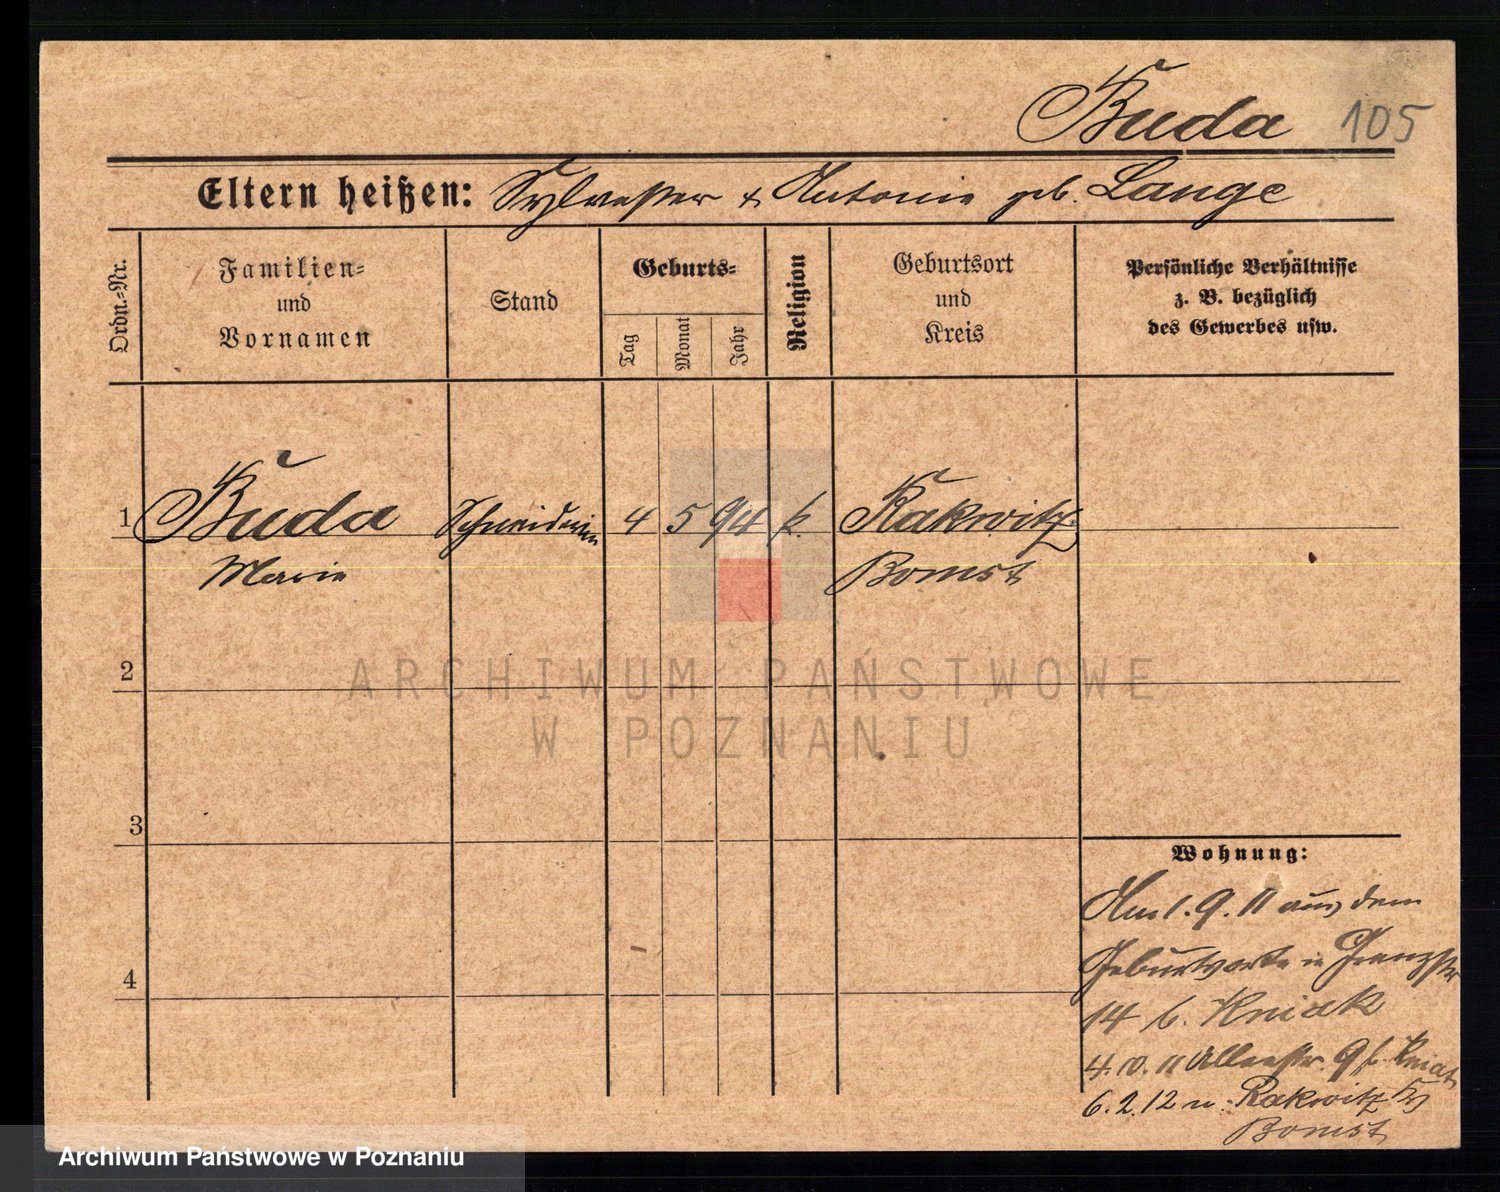 Buda 105
Eltern heißen: Sylvester & Antonie geb. Lange
Ordn.-Nr.
Familien-
und
Vornamen
Stand
Geburts-
Tag
Monat
Jahr
Religion
Geburtsort
und
Kreis
Persönliche Verhältnisse
z. B. bezüglich
des Gewerbes usw.
1 Buda Schneiderin 4 5 94 k. Rakwitz
Marie Bomst
2
3
4
Wohnung:
Am 1. 9. 11 aus dem
Geburtsorte in
14 b. Kniak
4. 10. 11 Alleestr. 9 b. Kniak
6. 2. 12 n. Rakwitz Krs
Bomst
ARCHIWUM PAŃSTWOWE
W POZNANIU
Archiwum Państwowe w Poznaniu